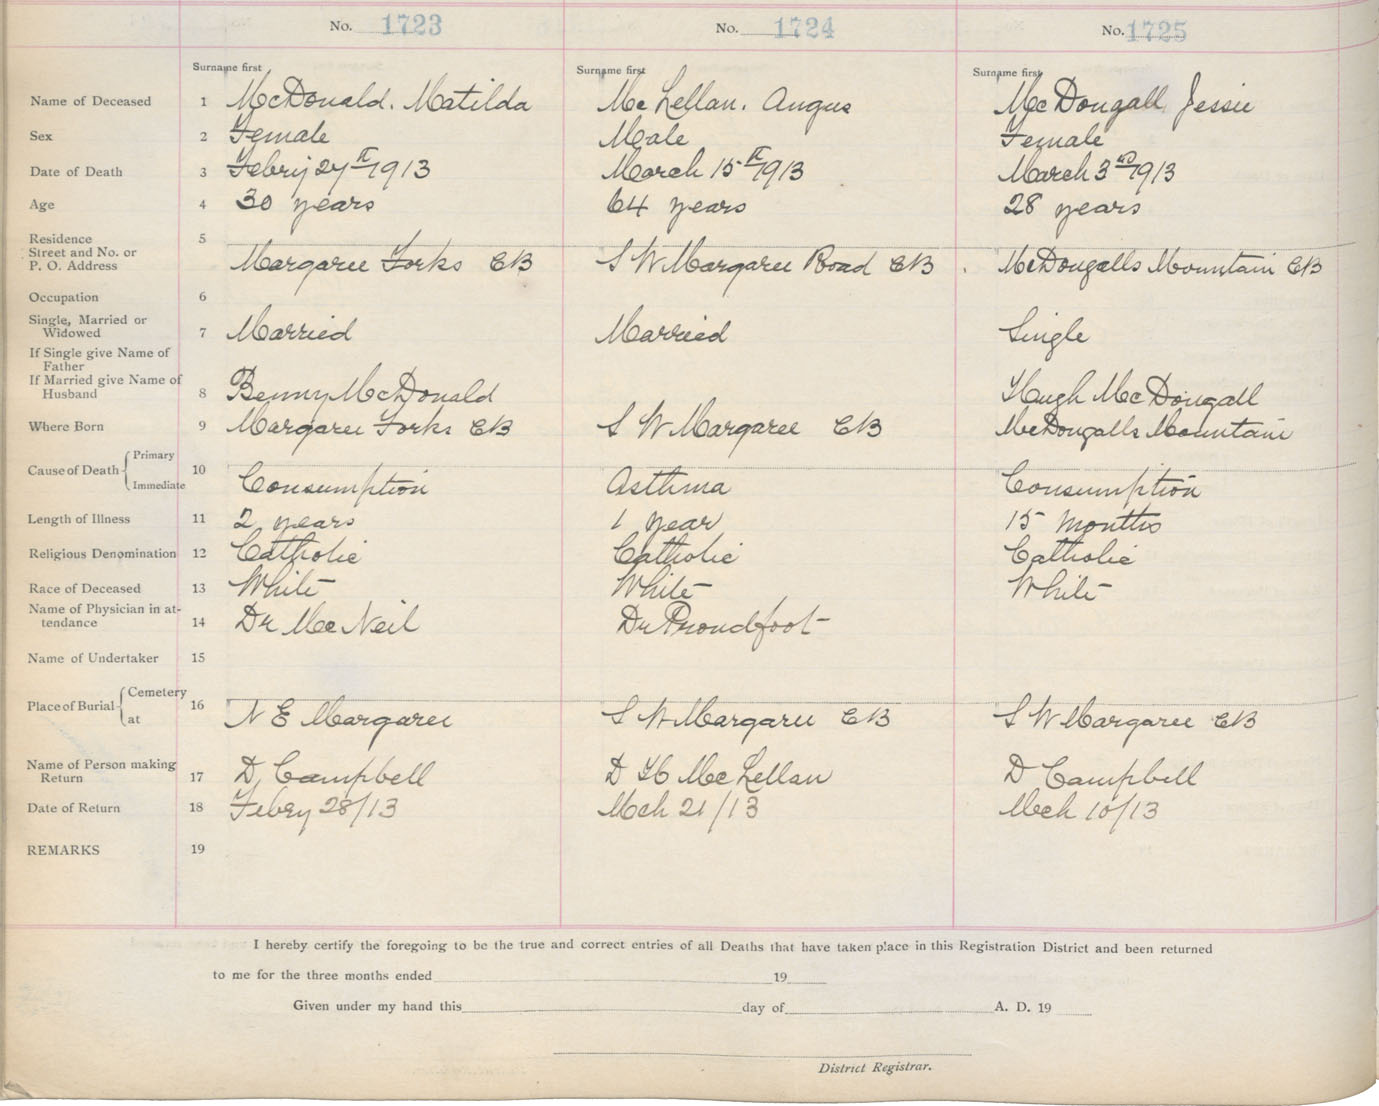 No. 1723 No. 1724 No. 1725
Surname first Surname first Surname first
Name of Deceased 1 McDonald. Matilda McLellan. Angus McDougall Jessie
Sex 2 Female Male Female
Date of Death 3 Febry 27th 1913 March 15th 1913 March 3rd 1913
Age 4 30 years 64 years 28 years
Residence 5
Street and No. or
P. O. Address Margaree Forks CB S W Margaree Road CB McDougalls Mountain CB
Occupation 6
Single, Married or
Widowed 7 Married Married Single
If Single give Name of
Father
If Married give Name of
Husband 8 Benny McDonald Hugh McDougall
Where Born 9 Margaree Forks CB S W Margaree CB McDougalls Mountain
Primary
Cause of Death 10
Immediate Consumption Asthma Consumption
Length of Illness 11 2 years 1 year 15 months
Religious Denomination 12 Catholic Catholic Catholic
Race of Deceased 13 White White White
Name of Physician in at-
tendance 14 Dr McNeil Dr Proudfoot
Name of Undertaker 15
Cemetery
Place of Burial 16
at N E Margaree S W Margaree CB S W Margaree CB
Name of Person making
Return 17 D, Campbell D H McLellan D Campbell
Date of Return 18 Febry 28/13 Mch 21/13 Mch 10/13
REMARKS 19
I hereby certify the foregoing to be the true and correct entries of all Deaths that have taken place in this Registration District and been returned
to me for the three months ended 19
Given under my hand this day of A. D. 19
District Registrar.